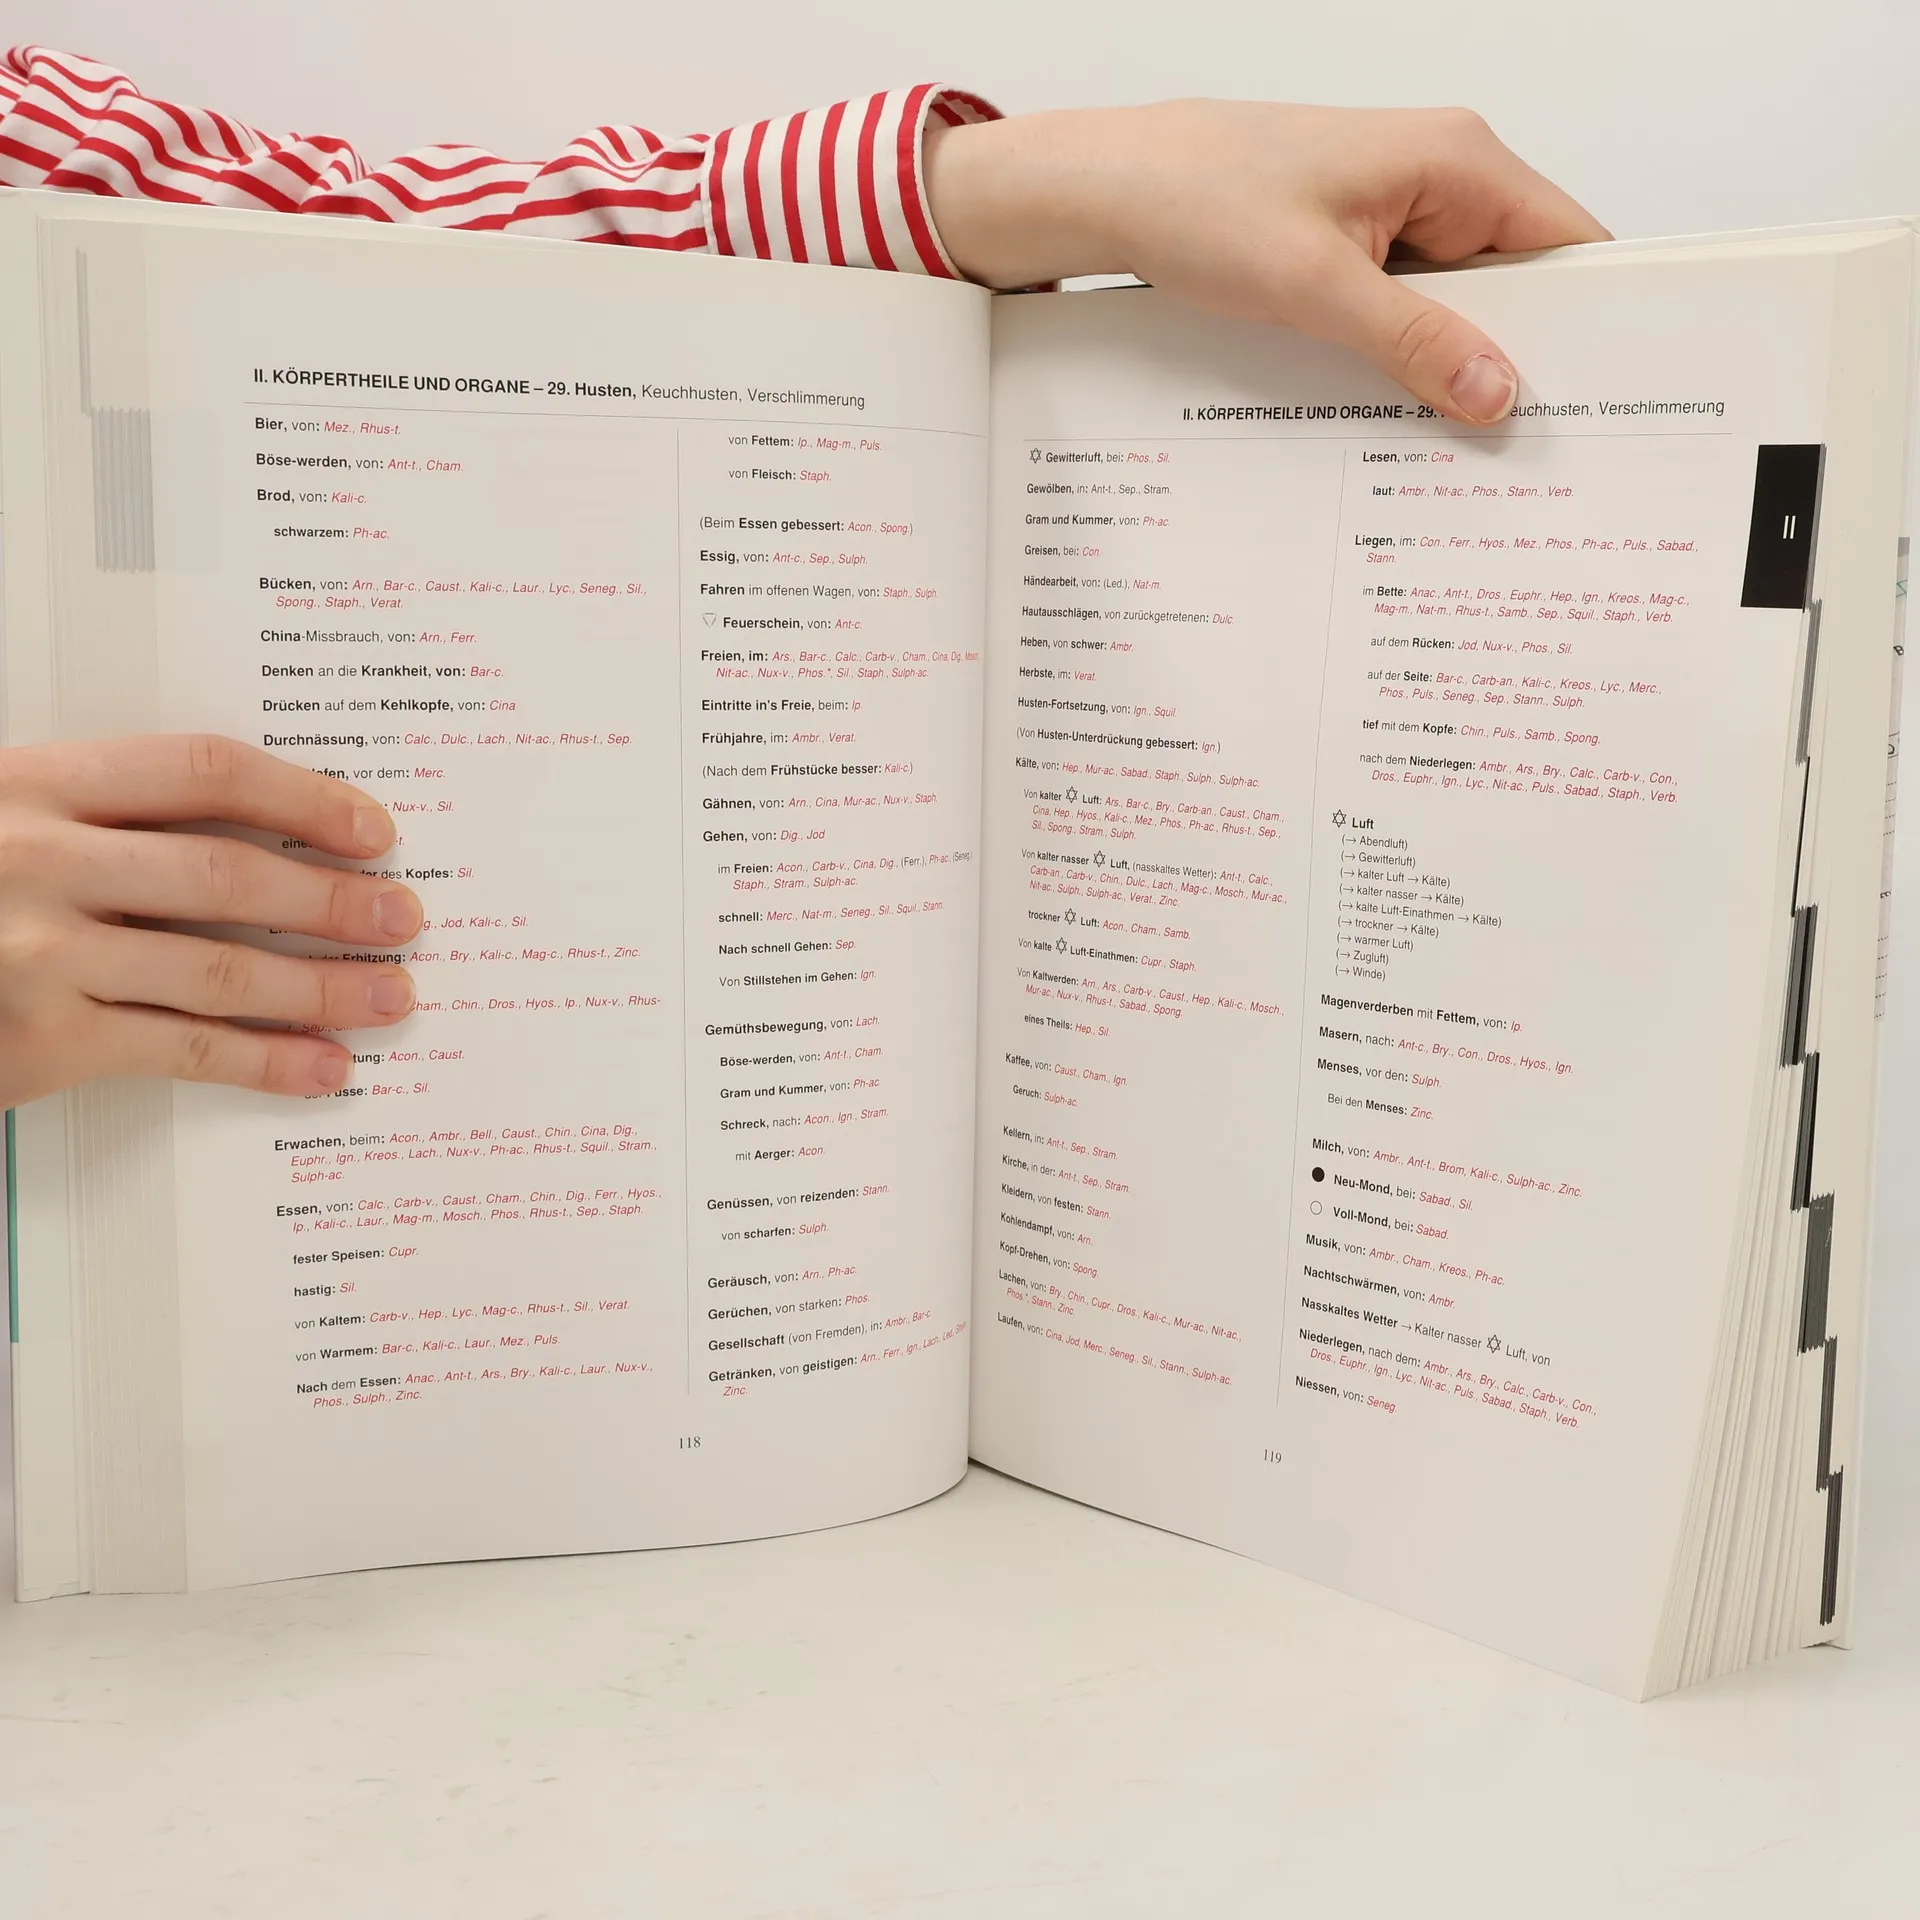 II. KÖRPERTHEILE UND ORGANE – 29. Husten, Keuchhusten, Verschlimmerung
Bier, von: Mez., Rhus-t.
Böse-werden, von: Ant-t., Cham.
Brod, von: Kali-c.
schwarzem: Ph-ac.
Bücken, von: Arn., Bar-c., Caust., Kali-c., Laur., Lyc., Seneg., Sil.,
Spong., Staph., Verat.
China-Missbrauch, von: Arn., Ferr.
Denken an die Krankheit, von: Bar-c.
Drücken auf dem Kehlkopfe, von: Cina
Durchnässung, von: Calc., Dulc., Lach., Nit-ac., Rhus-t., Sep.
vor dem: Merc.
Nux-v., Sil.
des Kopfes: Sil.
Jod, Kali-c., Sil.
Erhitzung: Acon., Bry., Kali-c., Mag-c., Rhus-t., Zinc.
Cham., Chin., Dros., Hyos., Ip., Nux-v., Rhus-
t., Sep.,
Acon., Caust.
Bar-c., Sil.
Erwachen, beim: Acon., Ambr., Bell., Caust., Chin., Cina, Dig.,
Euphr., Ign., Kreos., Lach., Nux-v., Ph-ac., Rhus-t., Squil., Stram.,
Sulph-ac.
Essen, von: Calc., Carb-v., Caust., Cham., Chin., Dig., Ferr., Hyos.,
Ip., Kali-c., Laur., Mag-m., Mosch., Phos., Rhus-t., Sep., Staph.
fester Speisen: Cupr.
hastig: Sil.
von Kaltem: Carb-v., Hep., Lyc., Mag-c., Rhus-t., Sil., Verat.
von Warmem: Bar-c., Kali-c., Laur., Mez., Puls.
Nach dem Essen: Anac., Ant-t., Ars., Bry., Kali-c., Laur., Nux-v.,
Phos., Sulph., Zinc.
von Fettem: Ip., Mag-m., Puls.
von Fleisch: Staph.
(Beim Essen gebessert: Acon., Spong.)
Essig, von: Ant-c., Sep., Sulph.
Fahren im offenen Wagen, von: Staph., Sulph.
Feuerschein, von: Ant-c.
Freien, im: Ars., Bar-c., Calc., Carb-v., Cham., Cina, Dig., Mosch.,
Nit-ac., Nux-v., Phos.*, Sil., Staph., Sulph-ac.
Eintritte in's Freie, beim: Ip.
Frühjahre, im: Ambr., Verat.
(Nach dem Frühstücke besser: Kali-c.)
Gähnen, von: Arn., Cina, Mur-ac., Nux-v., Staph.
Gehen, von: Dig., Jod
im Freien: Acon., Carb-v., Cina, Dig., (Ferr.), Ph-ac., (Seneg.)
Staph., Stram., Sulph-ac.
schnell: Merc., Nat-m., Seneg., Sil., Squil., Stann.
Nach schnell Gehen: Sep.
Von Stillstehen im Gehen: Ign.
Gemüthsbewegung, von: Lach.
Böse-werden, von: Ant-t., Cham.
Gram und Kummer, von: Ph-ac.
Schreck, nach: Acon., Ign., Stram.
mit Aerger: Acon.
Genüssen, von reizenden: Stann.
von scharfen: Sulph.
Geräusch, von: Arn., Ph-ac.
Gerüchen, von starken: Phos.
Gesellschaft (von Fremden), in: Ambr., Bar-c.
Getränken, von geistigen: Arn., Ferr., Ign., Lach., Led., Stram.
Zinc.
118
II. KÖRPERTHEILE UND ORGANE – 29. Keuchhusten, Verschlimmerung
II
Gewitterluft, bei: Phos., Sil.
Gewölben, in: Ant-t., Sep., Stram.
Gram und Kummer, von: Ph-ac.
Greisen, bei: Con.
Händearbeit, von: (Led.), Nat-m.
Hautausschlägen, von zurückgetretenen: Dulc.
Heben, von schwer: Ambr.
Herbste, im: Verat.
Husten-Fortsetzung, von: Ign., Squil.
(Von Husten-Unterdrückung gebessert: Ign.)
Kälte, von: Hep., Mur-ac., Sabad., Staph., Sulph., Sulph-ac.
Von kalter Luft: Ars., Bar-c., Bry., Carb-an., Caust., Cham.,
Cina, Hep., Hyos., Kali-c., Mez., Phos., Ph-ac., Rhus-t., Sep.,
Sil., Spong., Stram., Sulph.
Von kalter nasser Luft, (nasskaltes Wetter): Ant-t., Calc.,
Carb-an., Carb-v., Chin., Dulc., Lach., Mag-c., Mosch., Mur-ac.,
Nit-ac., Sulph., Sulph-ac., Verat., Zinc.
trockner Luft: Acon., Cham., Samb.
Von kalte Luft-Einathmen: Cupr., Staph.
Von Kaltwerden: Arn., Ars., Carb-v., Caust., Hep., Kali-c., Mosch.,
Mur-ac., Nux-v., Rhus-t., Sabad., Spong.
eines Theils: Hep., Sil.
Kaffee, von: Caust., Cham., Ign.
Geruch: Sulph-ac.
Kellern, in: Ant-t., Sep., Stram.
Kirche, in der: Ant-t., Sep., Stram.
Kleidern, von festen: Stann.
Kohlendampf, von: Arn.
Kopf-Drehen, von: Spong.
Lachen, von: Bry., Chin., Cupr., Dros., Kali-c., Mur-ac., Nit-ac.,
Phos.*, Stann., Zinc.
Laufen, von: Cina, Jod, Merc., Seneg., Sil., Stann., Sulph-ac.
Lesen, von: Cina
laut: Ambr., Nit-ac., Phos., Stann., Verb.
Liegen, im: Con., Ferr., Hyos., Mez., Phos., Ph-ac., Puls., Sabad.,
Stann.
im Bette: Anac., Ant-t., Dros., Euphr., Hep., Ign., Kreos., Mag-c.,
Mag-m., Nat-m., Rhus-t., Samb., Sep., Squil., Staph., Verb.
auf dem Rücken: Jod, Nux-v., Phos., Sil.
auf der Seite: Bar-c., Carb-an., Kali-c., Kreos., Lyc., Merc.,
Phos., Puls., Seneg., Sep., Stann., Sulph.
tief mit dem Kopfe: Chin., Puls., Samb., Spong.
nach dem Niederlegen: Ambr., Ars., Bry., Calc., Carb-v., Con.,
Dros., Euphr., Ign., Lyc., Nit-ac., Puls., Sabad., Staph., Verb.
Luft
(→ Abendluft)
(→ Gewitterluft)
(→ kalter Luft → Kälte)
(→ kalter nasser → Kälte)
(→ kalte Luft-Einathmen → Kälte)
(→ trockner → Kälte)
(→ warmer Luft)
(→ Zugluft)
(→ Winde)
Magenverderben mit Fettem, von: Ip.
Masern, nach: Ant-c., Bry., Con., Dros., Hyos., Ign.
Menses, vor den: Sulph.
Bei den Menses: Zinc.
Milch, von: Ambr., Ant-t., Brom, Kali-c., Sulph-ac., Zinc.
Neu-Mond, bei: Sabad., Sil.
Voll-Mond, bei: Sabad.
Musik, von: Ambr., Cham., Kreos., Ph-ac.
Nachtschwärmen, von: Ambr.
Nasskaltes Wetter → Kalter nasser Luft, von
Niederlegen, nach dem: Ambr., Ars., Bry., Calc., Carb-v., Con.,
Dros., Euphr., Ign., Lyc., Nit-ac., Puls., Sabad., Staph., Verb.
Niessen, von: Seneg.
119